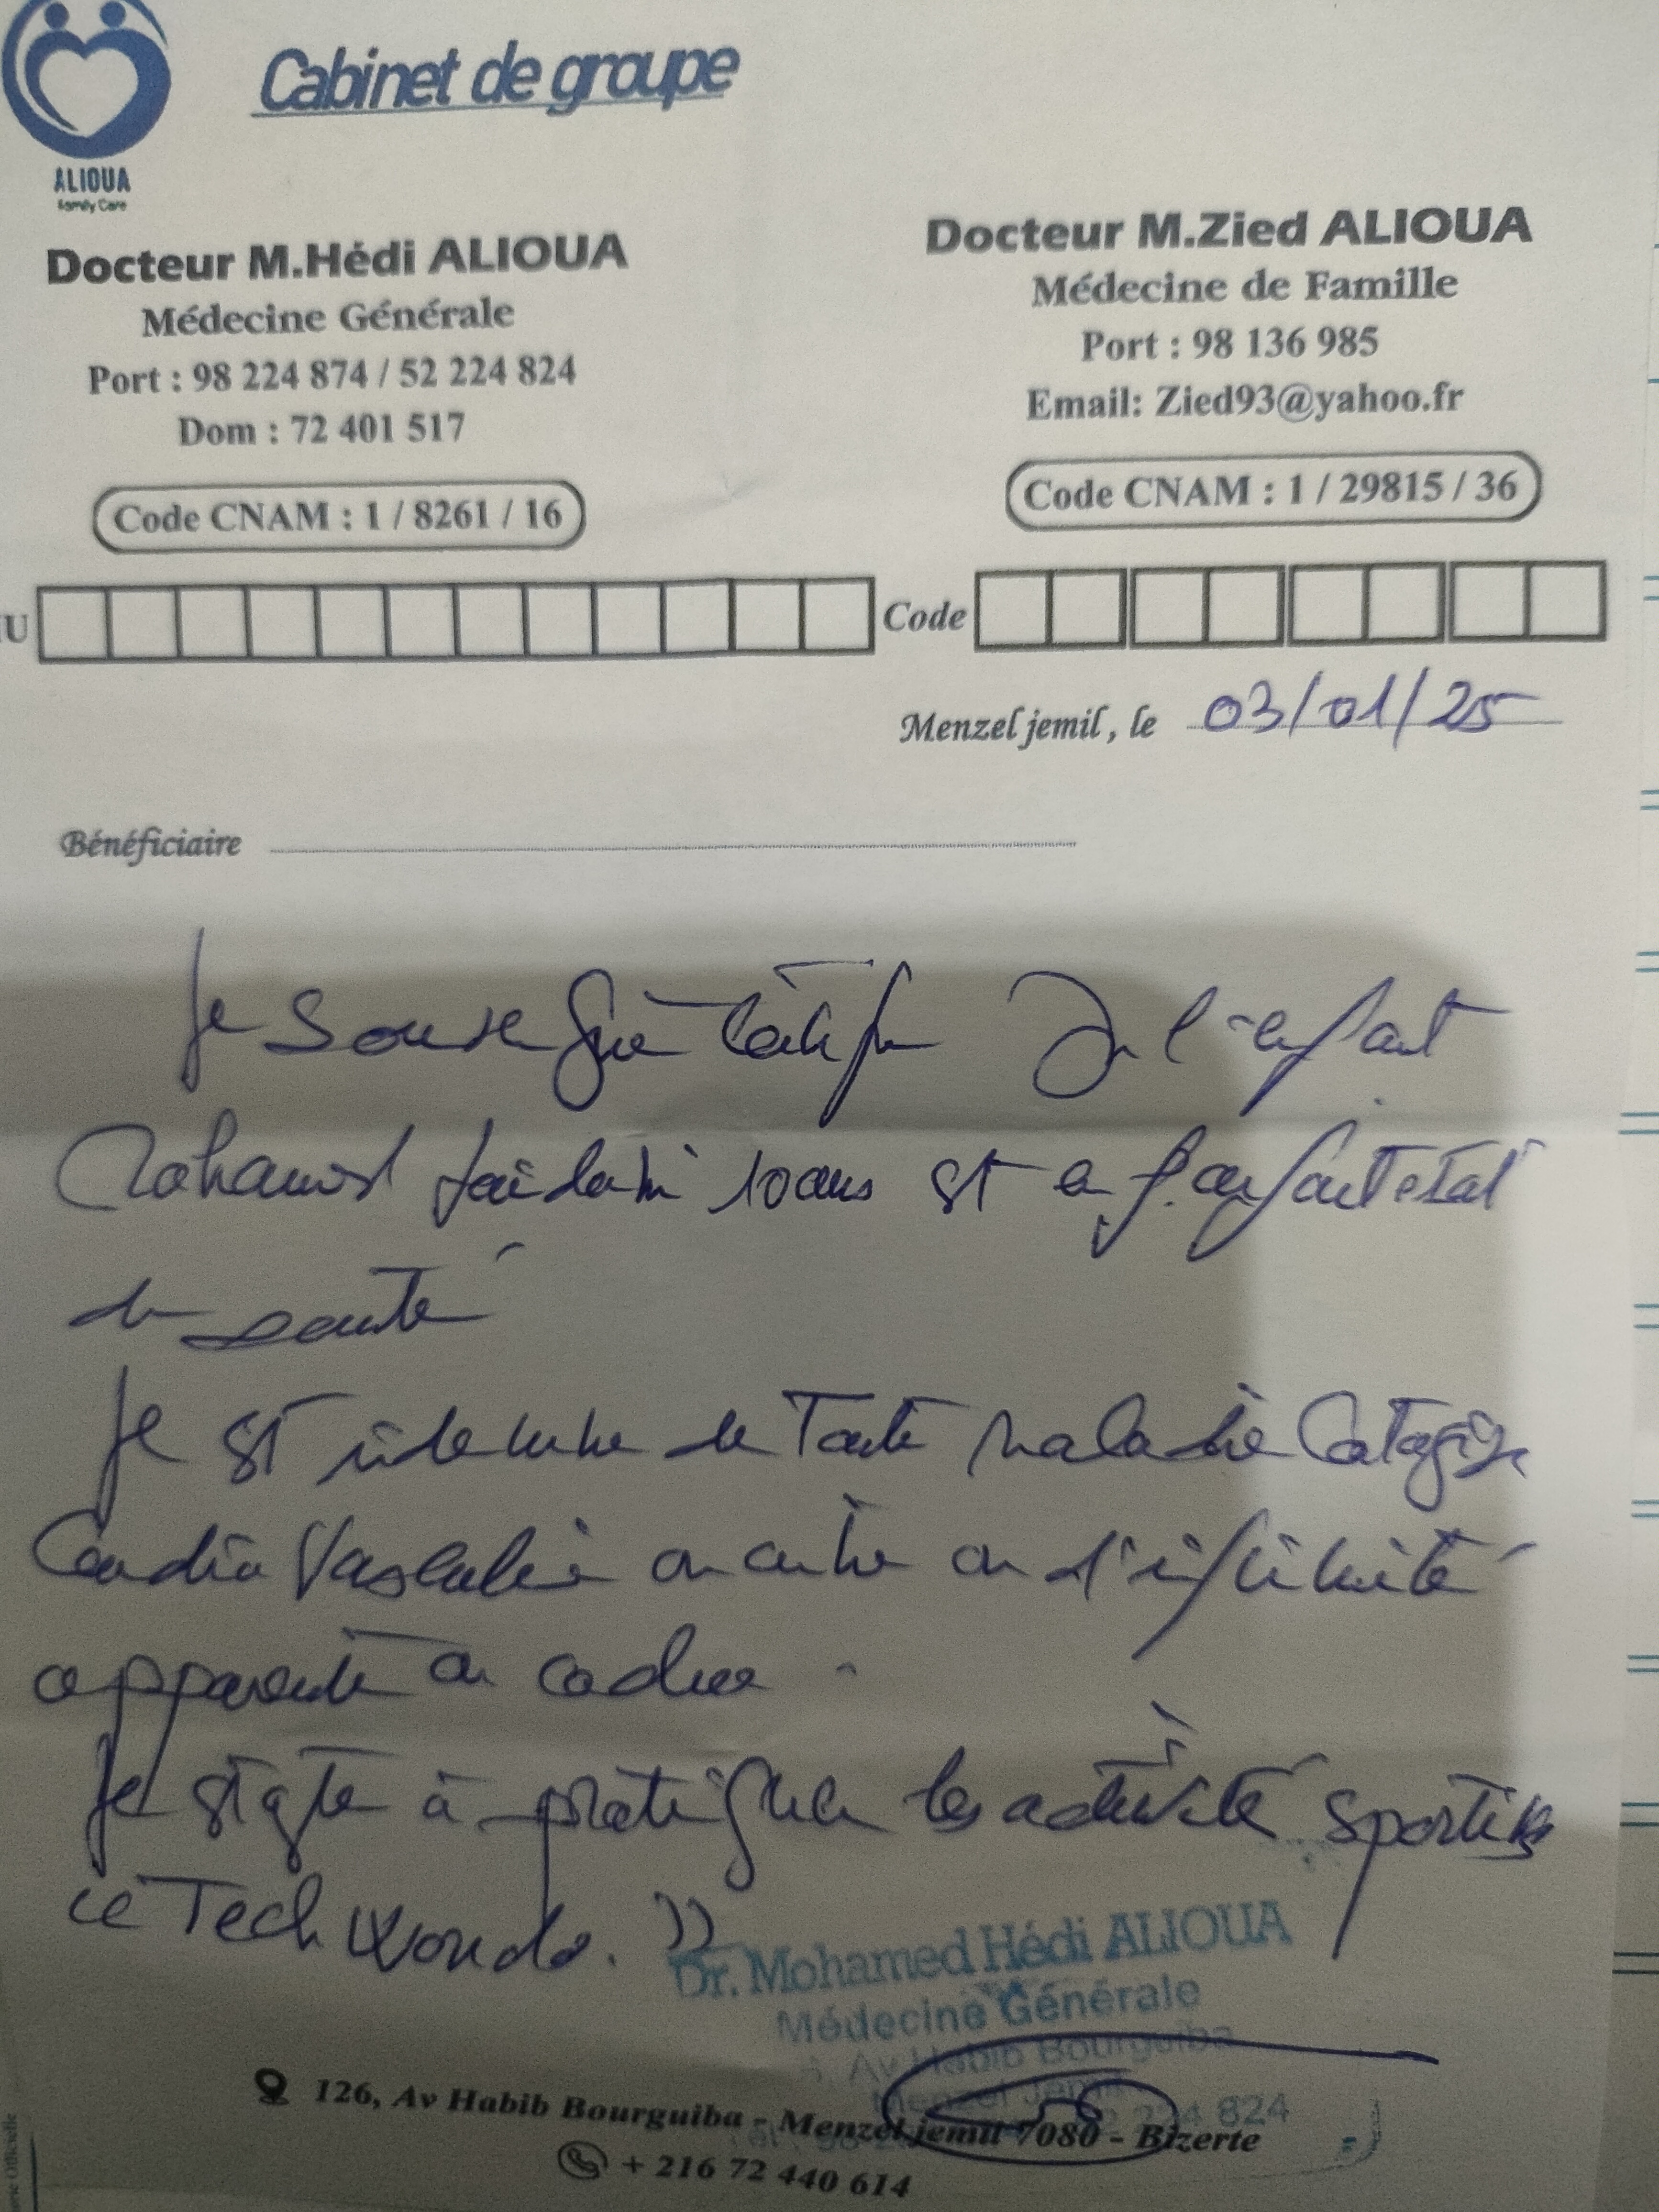 Cabinet de groupe
ALIOUA
Family Care
Docteur M.Hédi ALIOUA
Médecine Générale
Port : 98 224 874 / 52 224 824
Dom : 72 401 517
Code CNAM : 1 / 8261 / 16
Docteur M.Zied ALIOUA
Médecine de Famille
Port : 98 136 985
Email: Zied93@yahoo.fr
Code CNAM : 1 / 29815 / 36
IU
Code
Menzel jemil, le 03/01/25
Bénéficiaire
Je soussigné certifie que l'enfant
Mohamed 10 ans est en parfait état
de santé
Il est indemne de toute maladie contagieuse
Cardio Vasculaire ou autre ou d'infirmité
apparente ou cachée.
Il est apte à pratiquer les activité sportives
Techwondo. ))
Dr. Mohamed Hédi ALIOUA
Médecine Générale
Av Habib Bourguiba
Menzel Jemil
224 824
126, Av Habib Bourguiba - Menzel jemil 7080 - Bizerte
+ 216 72 440 614